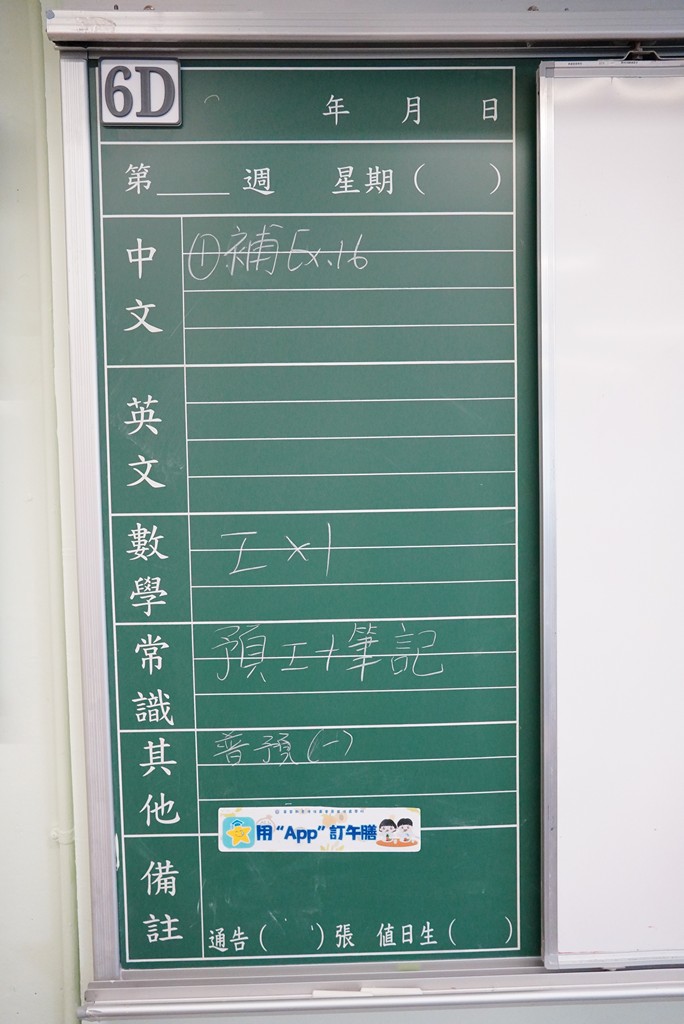 6D
年 月 日
第____週 星期( )
中文
①補Ex.16
英文
數學
工×1
常識
預工+筆記
其他
普預(一)
用“App”訂午膳
備註
通告( )張 值日生( )